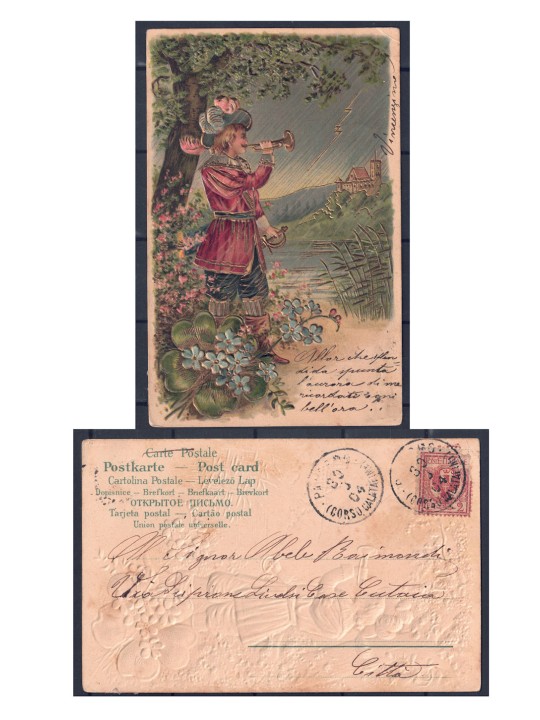 Vincenzino
Allor che splen
dida spunta
l'aurora di me
ricordate ogni
bell'ora..
Carte Postale
Postkarte — Post card
Cartolina Postale — Levelező Lap
Dopisnice — Brefkort — Briefkaart — Brevkort
ОТКРЫТОЕ ПИСЬМО.
Tarjeta postal — Cartão postal
Union postale universelle.
(CORSO CALATAFIMI)
Al Signor Abele Raimondi
Via
Città